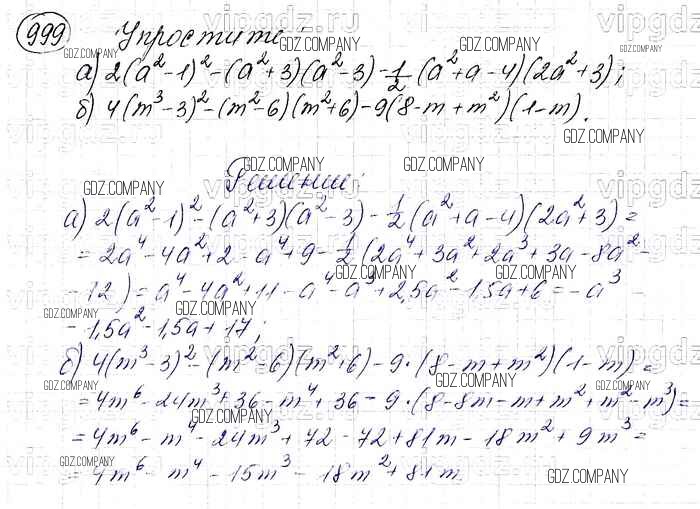 999 Упростите:
а) 2(a²-1)²-(a²+3)(a²-3)-1/2(a²+a-4)(2a²+3);
б) 4(m³-3)²-(m²-6)(m²+6)-9(8-m+m²)(1-m).
Решение:
а) 2(a²-1)²-(a²+3)(a²-3)-1/2(a²+a-4)(2a²+3)=
=2a⁴-4a²+2-a⁴+9-1/2(2a⁴+3a²+2a³+3a-8a²-
-12)=a⁴-4a²+11-a⁴-a³+2,5a²-1,5a+6=-a³-
-1,5a²-1,5a+17;
б) 4(m³-3)²-(m²-6)(m²+6)-9·(8-m+m²)(1-m)=
=4m⁶-24m³+36-m⁴+36-9·(8-8m-m+m²+m²-m³)=
=4m⁶-m⁴-24m³+72-72+81m-18m²+9m³=
=4m⁶-m⁴-15m³-18m²+81m
vipgdz.ru
GDZ.COMPANY